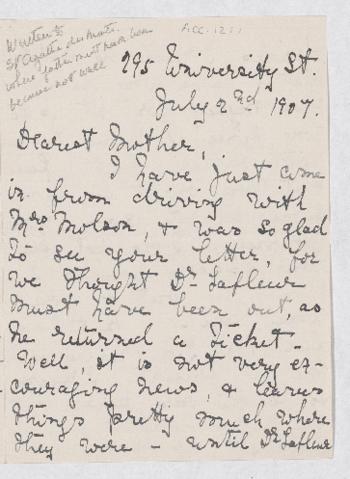 Written to
St Agathe des Monts
where father must have been
because not well
Acc. 1211
295 University St.
July 2nd 1907.
Dearest Mother,
I have just come
in from driving with
Mrs Molson, & was so glad
to see your letter, for
we thought Dr Lafleur
must have been out, as
he returned a ticket -
Well, it is not very en-
couraging news, & leaves
things pretty much where
they were - until Dr Lafleur